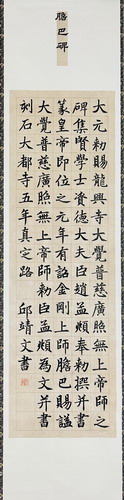 膽巴碑
大元勅賜龍興寺大覺普慈廣照無上帝師之
碑集賢學士資德大夫臣趙孟頫奉勅撰并書
篆皇帝即位之元年有詔金剛上師膽巴賜諡
大覺普慈廣照無上帝師勅臣孟頫為文并書
刻石大都寺五年真定路 邱靖文書